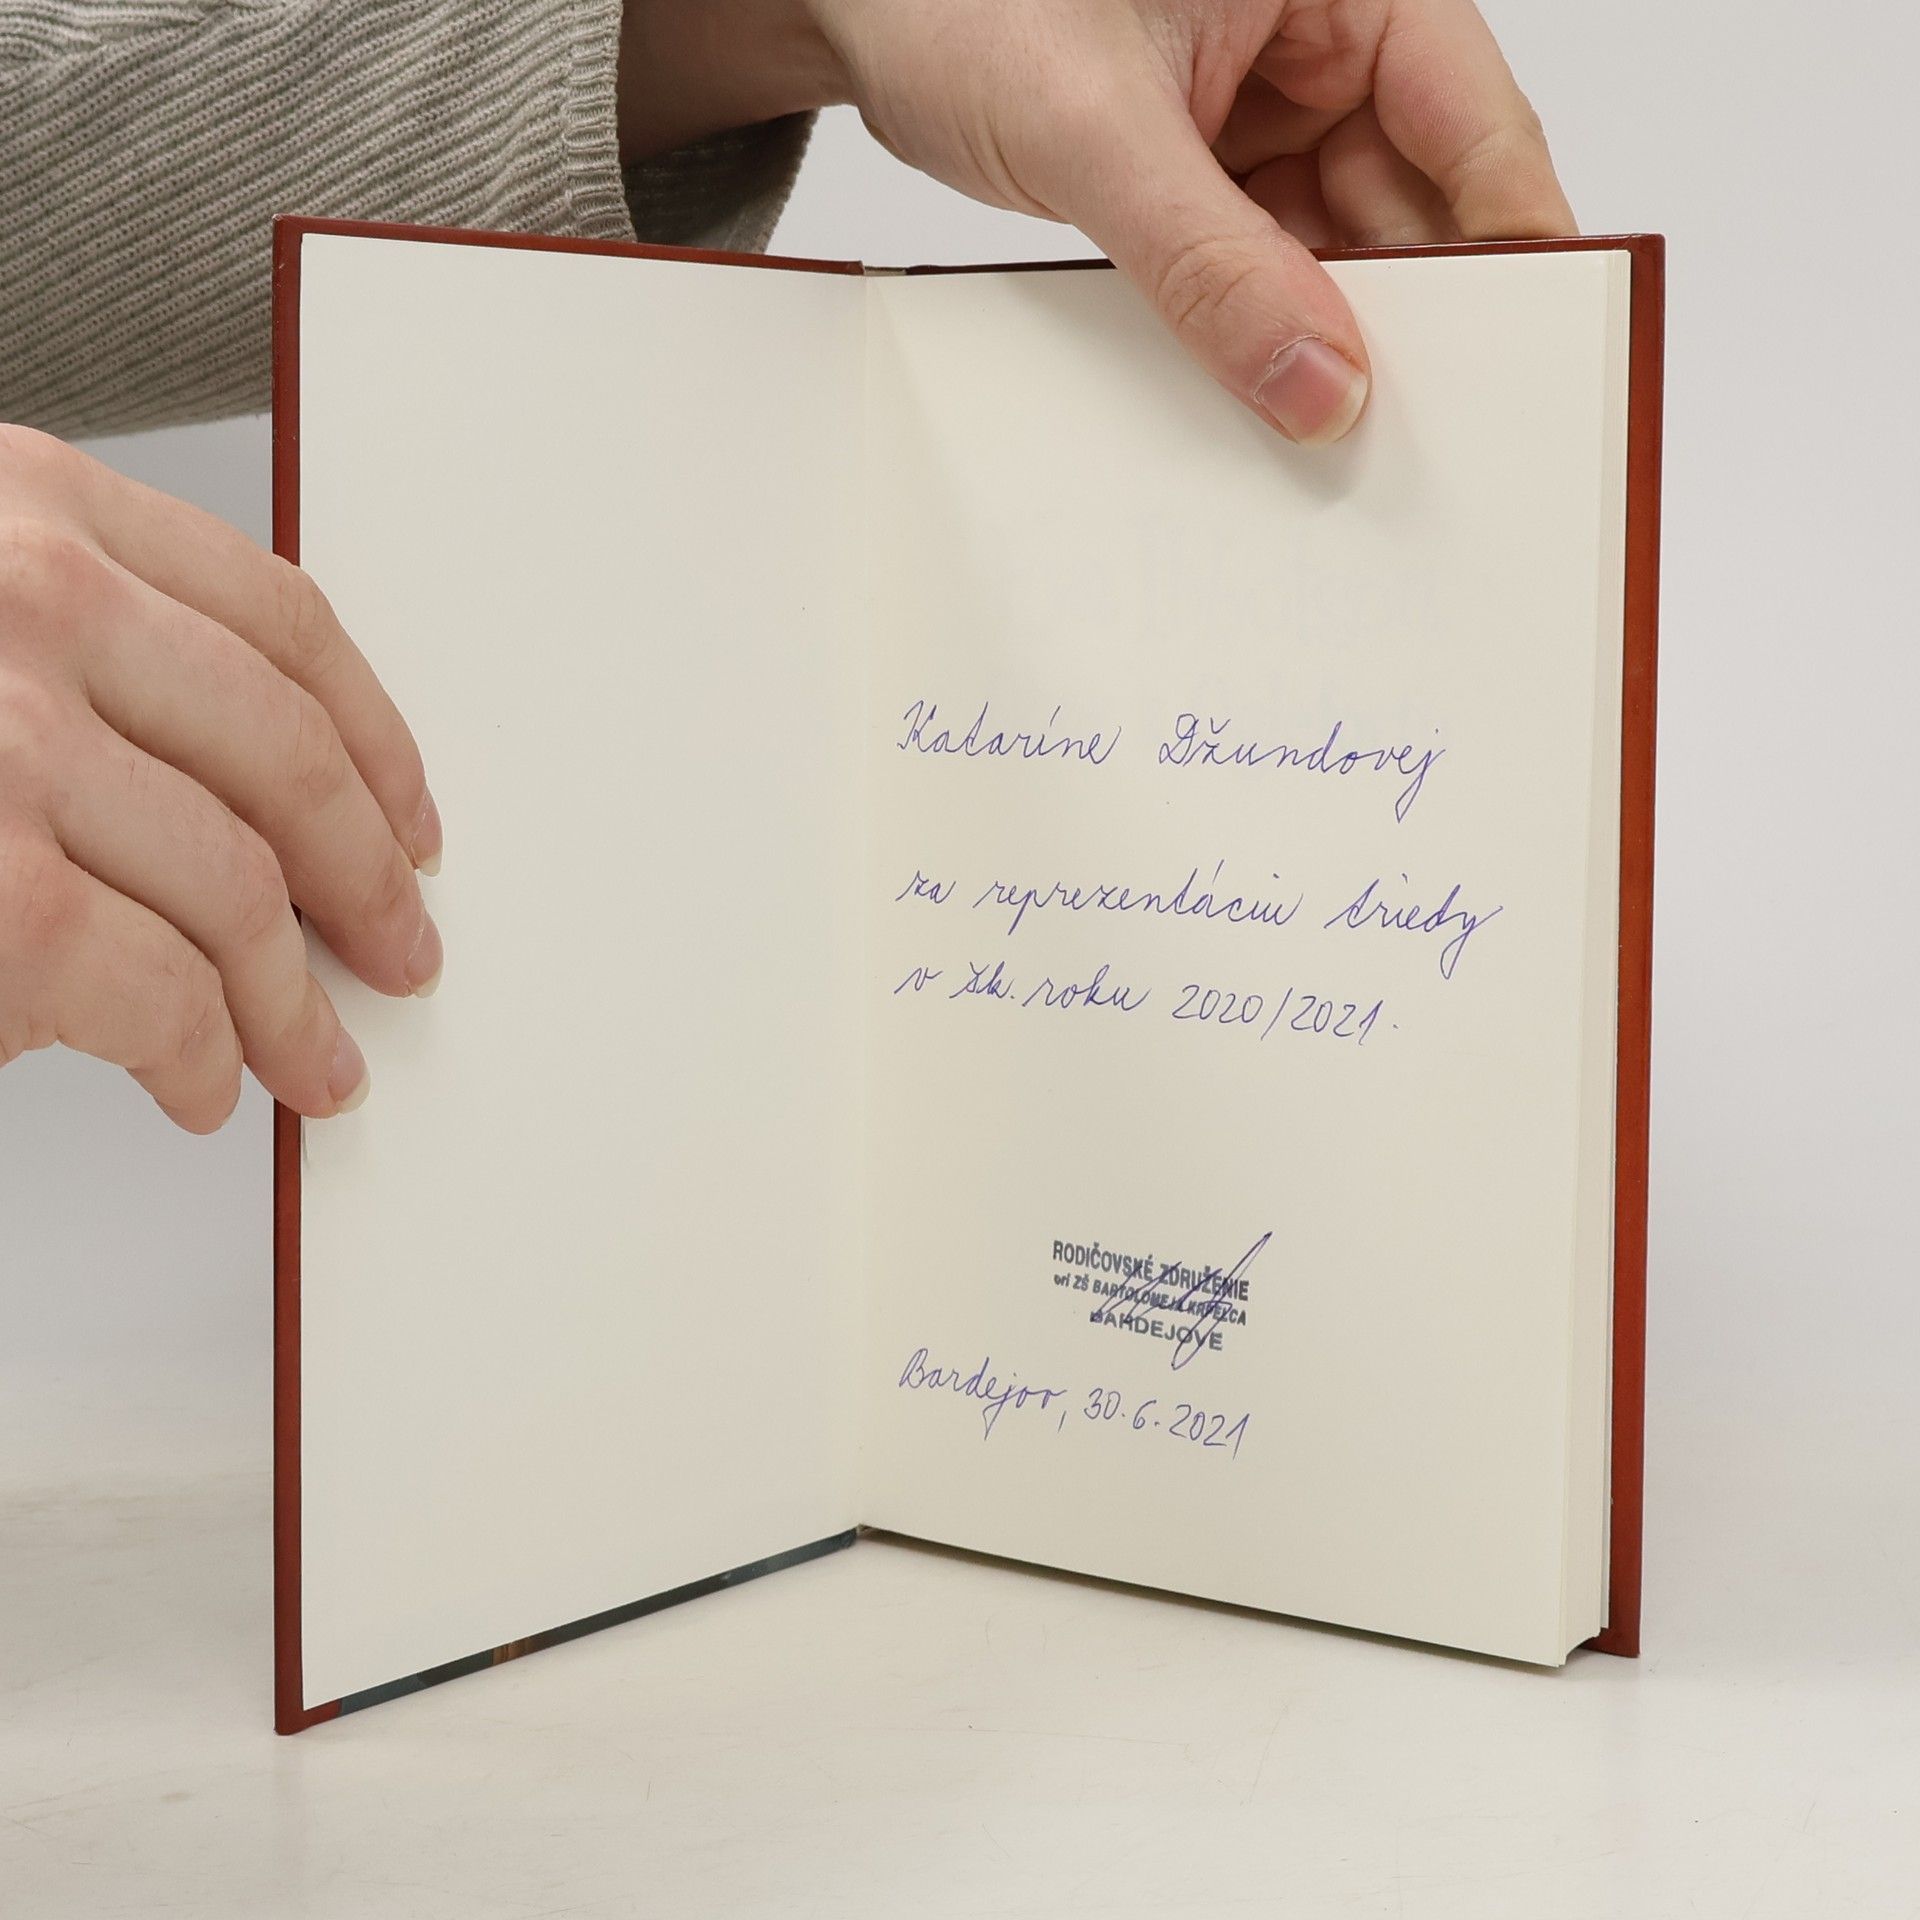 Kataríne Džundovej
za reprezentáciu triedy
v šk. roku 2020/2021.
RODIČOVSKÉ ZDRUŽENIE
pri ZŠ BARTOLOMEJA KRPELCA
BARDEJOVE
Bardejov, 30.6.2021